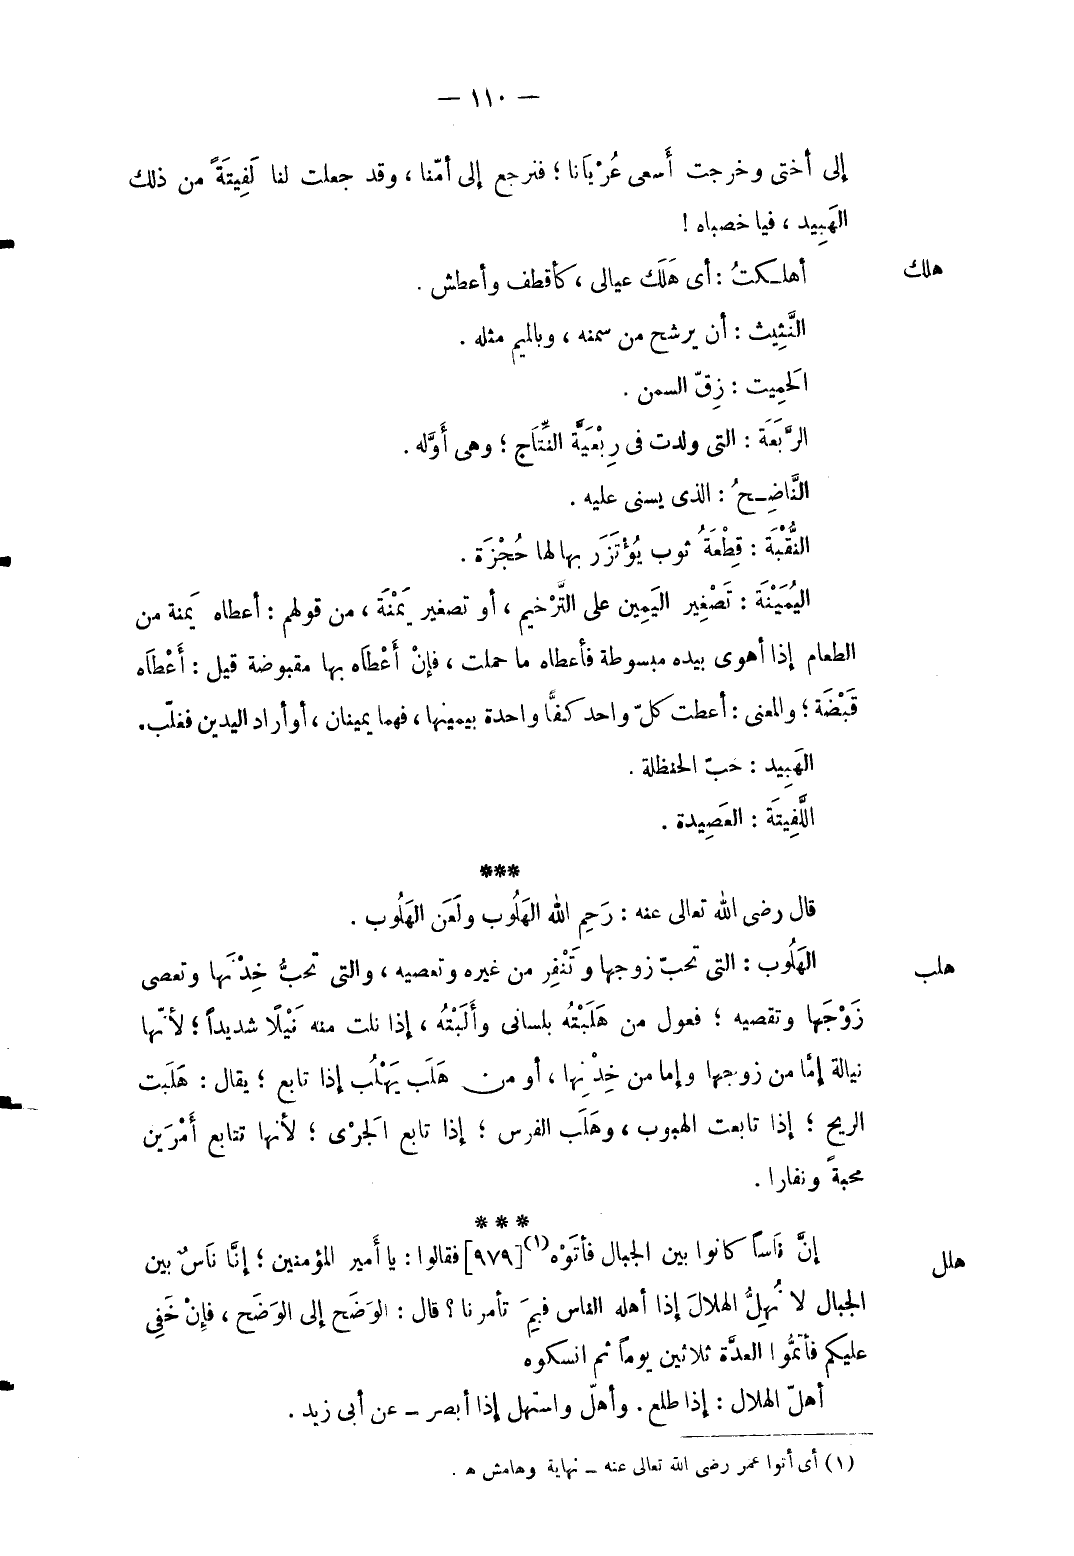 — ١١٠ —
إلى أختى وخرجت أَسعى عُرْيَانا ؛ فنرجع إلى أمّنا ، وقد جعلت لنا لَفِيتَةً من ذلك
الهَبِيد ، فيا خصباه !
هلك
أهلـكتُ : أى هَلَك عيالى ، كأقطف وأعطش .
النَّثِيث : أن يرشح من سمنه ، وبالميم مثله .
الحَمِيت : زِقّ السمن .
الرَّبَعَة : التى ولدت فى رِبْعيَّة النِّتَاج ؛ وهى أَوَّله .
النَّاضِـحُ : الذى يسنى عليه .
النُّقْبَة : قِطْعَةُ ثوب يُؤْتَزَر بها لها حُجْزَة .
اليُمَيْنَة : تَصْغِير اليَمِين على التَّرْخيم ، أو تصغير يَمْنَة ، من قولهم : أعطاه يَمنة من
الطعام إذا أهوى بيده مبسوطة فأعطاه ما حملت ، فإنْ أَعْطَاه بها مقبوضة قيل : أَعْطَاه
قَبْضَة ؛ والمعنى : أعطت كلّ واحد كفًّا واحدة بيمينها ، فهما يمينان ، أو أراد اليدين فغلّب .
الهَبِيد : حبّ الحنظلة .
اللَّفِيتَة : العَصِيدة .
***
قال رضى الله تعالى عنه : رَحِم الله الهَلُوب ولَعَن الهَلُوب .
هلب
الهَلُوب : التى تحبّ زوجها وتَنْفِر من غيره وتعصيه ، والتى تحبُّ خِدْنَها وتعصى
زَوْجَها وتقصيه ؛ فعول من هَلَبْتُه بلسانى وأَلَبْتُه ، إذا نلت منه نَيْلًا شديداً ؛ لأنّها
نيالة إمَّا من زوجها وإما من خِدْنِها ، أو من هَلَب يَهْلُب إذا تابع ؛ يقال : هَلَبت
الريح ؛ إذا تابعت الهبوب ، وهَلَب الفرس ؛ إذا تابع الجَرْى ؛ لأنها تتابع أَمْرَين
محبةً ونفارا .
* * *
هلل
إنَّ نَاساً كانوا بين الجبال فأتَوْه(١) [٩٧٩] فقالوا : يا أَمير المؤمنين ؛ إنَّا نَاسٌ بين
الجبال لا نُهِلُّ الهلالَ إذا أهله الناس فبِمَ تأمرنا ؟ قال : الوَضَح إلى الوَضَح ، فإِنْ خَفِى
عليكم فأتمُّوا العدَّة ثلاثين يوماً ثم انسكوه
أهلّ الهلال : إذا طلع . وأهلّ واستهل إذا أبصر – عن أبى زيد .
(١) أى أتوا عمر رضى الله تعالى عنه – نهاية وهامش ه .